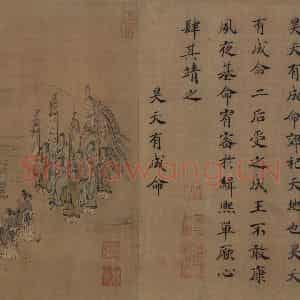 昊天有成命郊祀天地也昊天
有成命二后受之成王不敢康
夙夜基命宥密於緝熙單厥心
肆其靖之
昊天有成命
Shufawang.CN